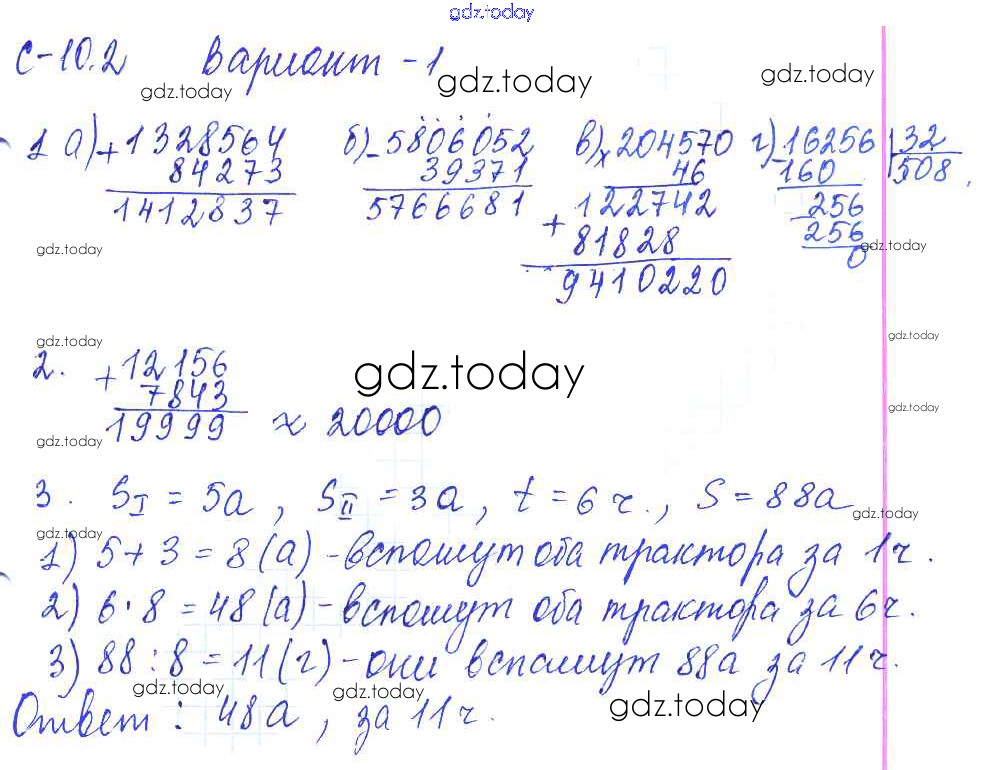 gdz.today
С-10.2 Вариант - 1
gdz.today gdz.today gdz.today
1 а) + 1328564 б) - 5806052 в) × 204570 г) - 16256 | 32
84273 39371 46 160 508
1412837 5766681 + 122742 - 256
81828 256
gdz.today gdz.today
9410220 0
gdz.today gdz.today
2. + 12156
7843 gdz.today
gdz.today
19999 ≈ 20000
gdz.today
3. S I = 5а, S II = 3а, t = 6 ч., S = 88а
gdz.today gdz.today gdz.today
1) 5 + 3 = 8 (а) - вспашут оба трактора за 1 ч.
2) 6 · 8 = 48 (а) - вспашут оба трактора за 6 ч.
3) 88 : 8 = 11 (ч) - они вспашут 88а за 11 ч.
gdz.today gdz.today gdz.today
Ответ : 48а, за 11 ч.